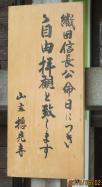 織田信長公命日につき
自由拝観と致します
山主 摠見寺